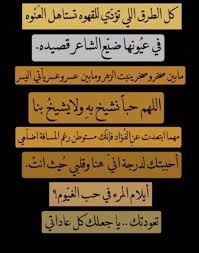 كل الطرق اللي تؤدي للقهوه تستاهل العنوه
في عيونها ضيّع الشاعر قصيده.
مابين صخر وصخر ينبت الزهر ومابين عسر وعسر يأتي اليسر
اللهم حباً نشيخ به ولا يشيخ بنا
مهما ابتعدت عن الفؤاد فإنك مستوطن رغم المسافة اضلعي
أحببتك لدرجة انّي هنا وقلبي حيث انت.
أيلام المرء في حب الغيوم؟
تعودتك .. يا جعلك كل عاداتي